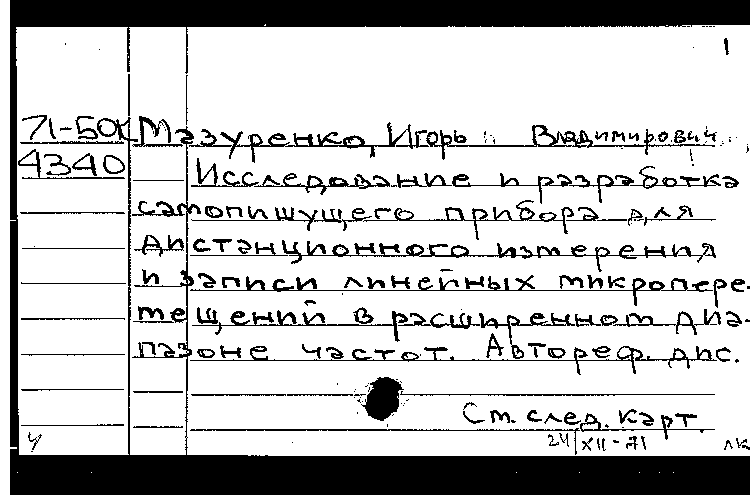 1
71-50к Мазуренко, Игорь Владимирович.
4340 Исследование и разработка
самопишущего прибора для
дистанционного измерения
и записи линейных микропере-
мещений в расширенном диа-
пазоне частот. Автореф. дис.
См. след. карт.
24/XII-71